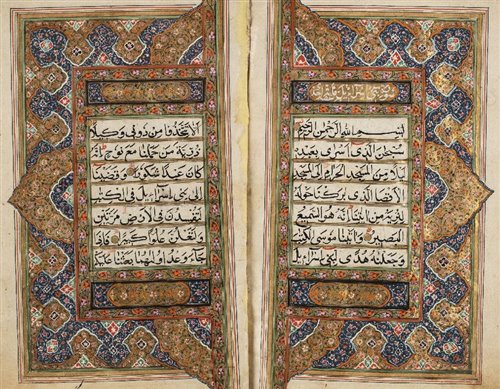 سورة بنی اسرائیل
بسم الله الرحمن الرحیم
سبحن الذی اسری بعبده
لیلا من المسجد الحرام الی المسجد
الاقصا الذی برکنا حوله
لنریه من ایتنا انه هو السمیع
البصیر واتینا موسی الکتب
وجعلنه هدی لبنی اسرایل
الا تتخذوا من دونی وکیلا
ذریة من حملنا مع نوح انه
کان عبدا شکورا وقضینا
الی بنی اسرایل فی الکتب
لتفسدن فی الارض مرتین
ولتعلن علوا کبیرا فاذا
جاء وعد اولهما بعثنا علیکم